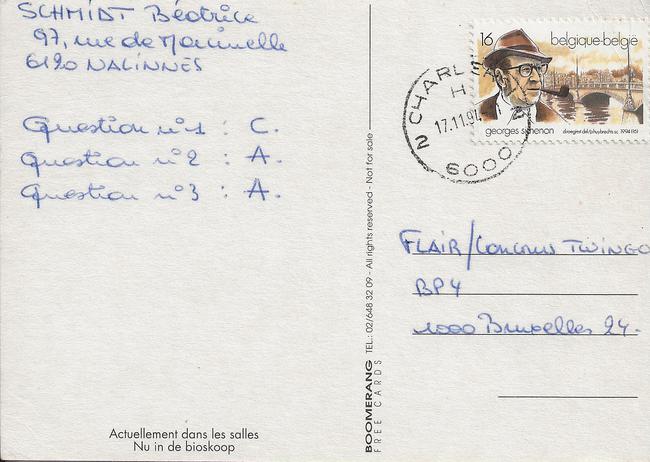 SCHMIDT Béatrice
97, rue de Marcinelle
6120 NALINNES
Question n°1 : C.
Question n°2 : A.
Question n°3 : A.
Actuellement dans les salles
Nu in de bioskoop
BOOMERANG TEL.: 02/648 32 09 - All rights reserved - Not for sale
FREE CARDS
16 belgique-belgië
georges simenon 1994 (16)
2 CHARL
H
17.11.9
6000
FLAIR/Concours TWINGO
BP4
1000 Bruxelles 24.